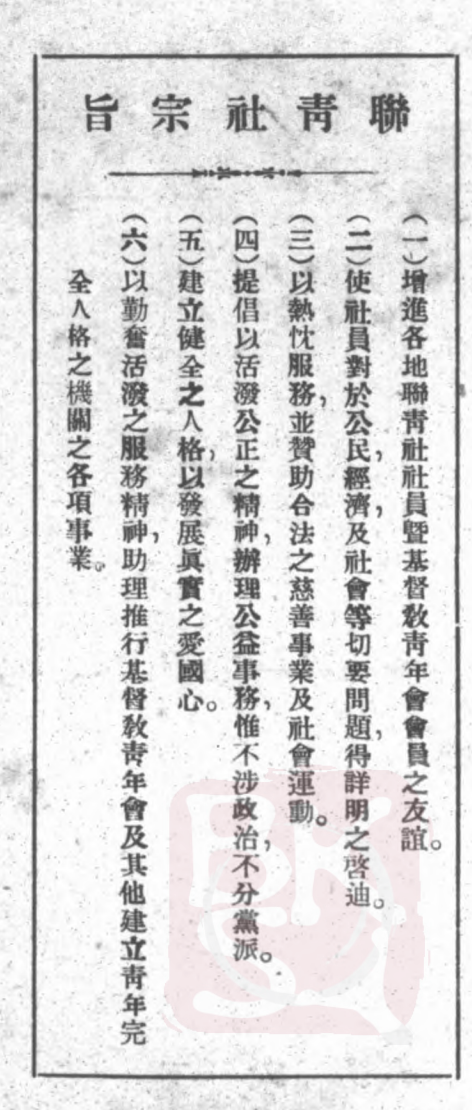 聯青社宗旨
(一)增進各地聯青社社員暨基督教青年會會員之友誼。
(二)使社員對於公民,經濟,及社會等切要問題,得詳明之啓迪。
(三)以熱忱服務,並贊助合法之慈善事業及社會運動。
(四)提倡以活潑公正之精神,辦理公益事務,惟不涉政治,不分黨派。
(五)建立健全之人格,以發展眞實之愛國心。
(六)以勤奮活潑之服務精神,助理推行基督教青年會及其他建立青年完
全人格之機關之各項事業。